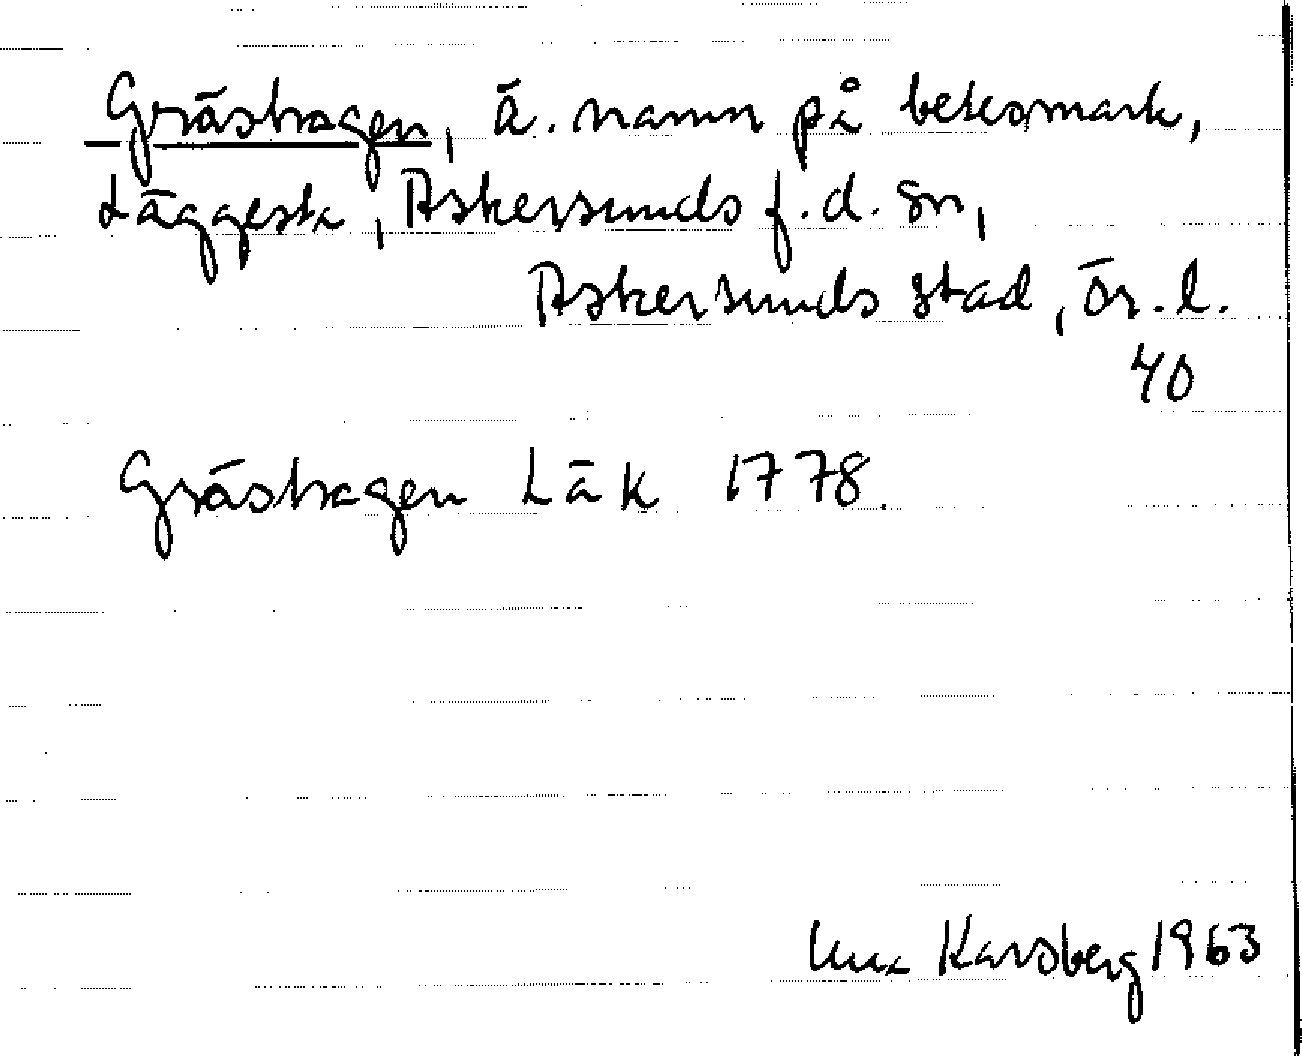 Gräshagen, ä. namn på betesmark,
Läggesta, Askersunds f.d. sn,
Askersunds stad, Ör. l.
40
Gräshagen LäK 1778.
Karsberg 1963